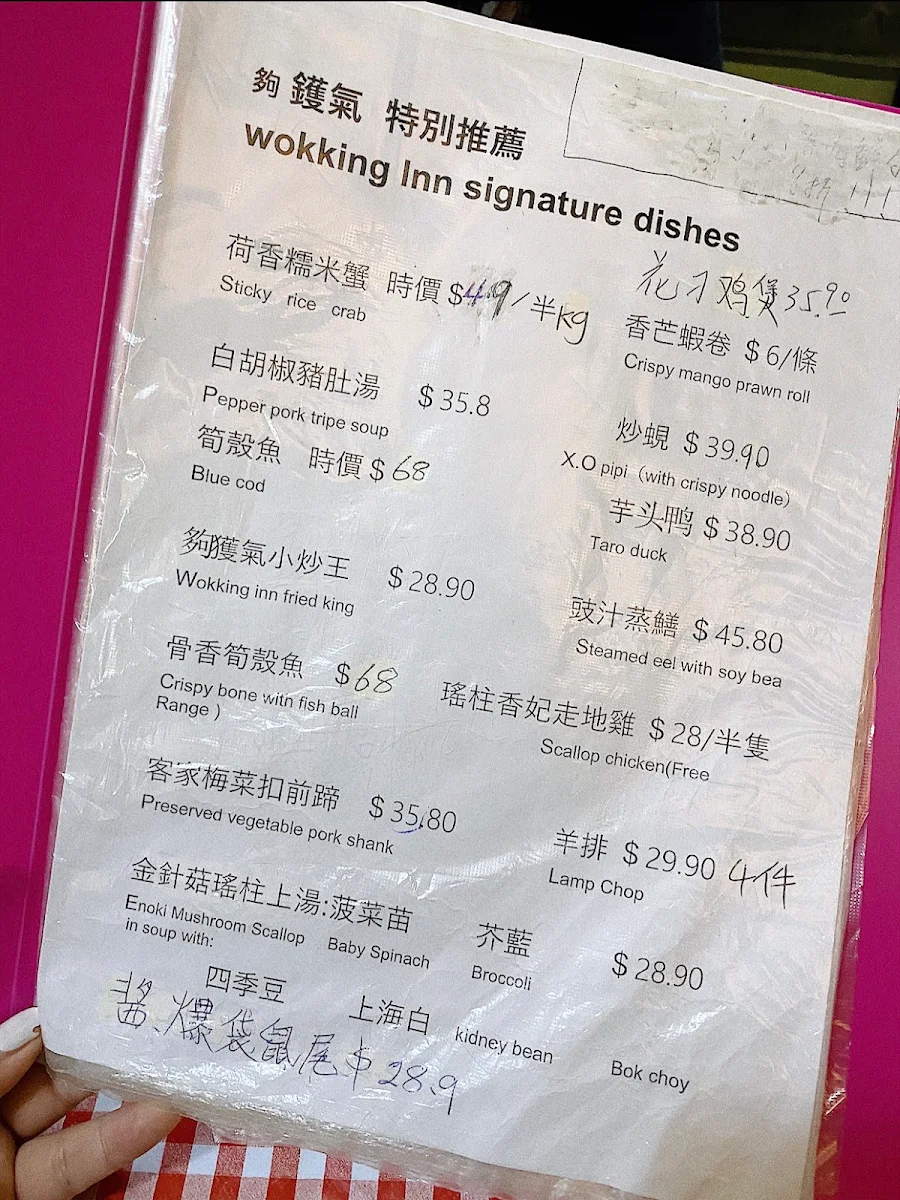 夠 鑊氣 特別推薦
wokking Inn signature dishes
荷香糯米蟹 時價 $49/半kg
Sticky rice crab
白胡椒豬肚湯 $35.8
Pepper pork tripe soup
筍殼魚 時價 $68
Blue cod
夠獲氣小炒王 $28.90
Wokking inn fried king
骨香筍殼魚 $68
Crispy bone with fish ball
Range )
客家梅菜扣前蹄 $35.80
Preserved vegetable pork shank
花刁鸡煲35.90
香芒蝦卷 $6/條
Crispy mango prawn roll
炒蜆 $39.90
X.O pipi (with crispy noodle)
芋头鸭 $38.90
Taro duck
豉汁蒸鱔 $45.80
Steamed eel with soy bea
瑤柱香妃走地雞 $28/半隻
Scallop chicken(Free
羊排 $29.90 4件
Lamp Chop
金針菇瑤柱上湯:菠菜苗 芥藍 $28.90
Enoki Mushroom Scallop Baby Spinach Broccoli
in soup with:
四季豆 上海白 kidney bean Bok choy
酱爆袋鼠尾$28.9